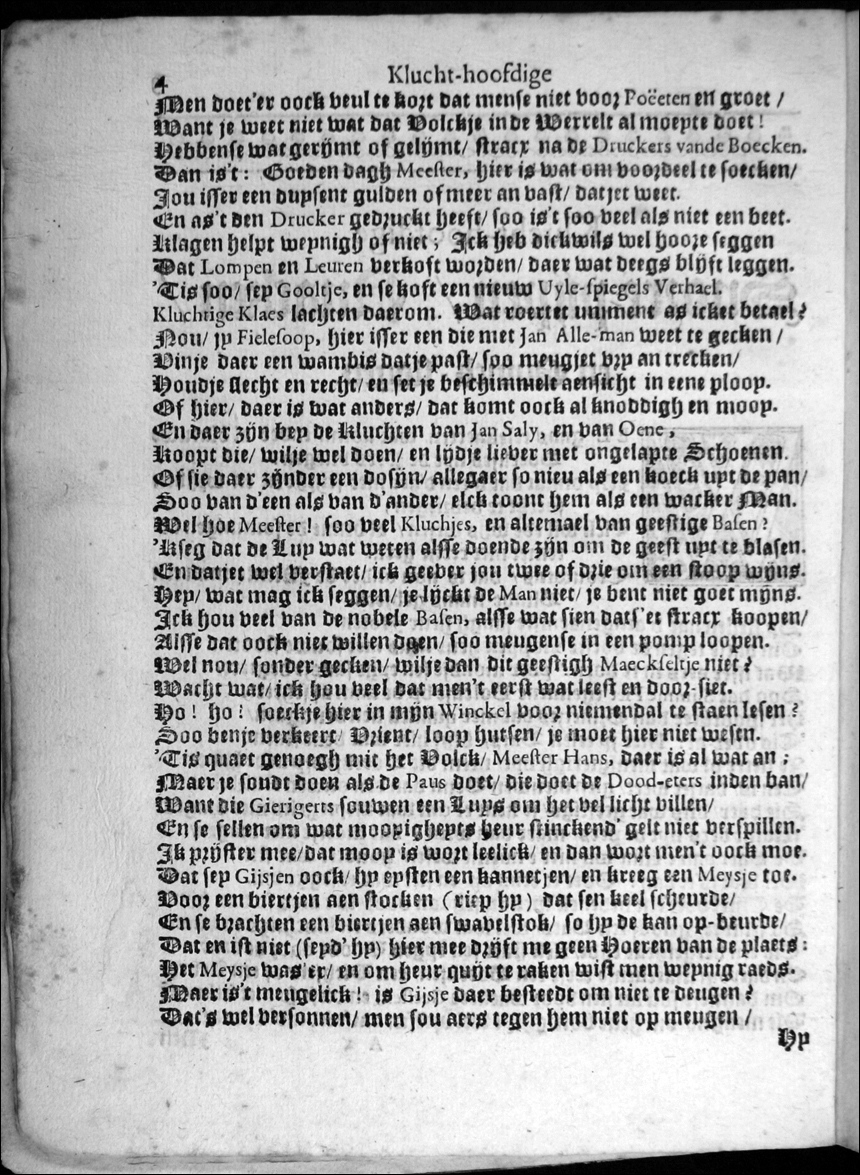 4 Klucht-hoofdige
Men doet'er oock veul te kort dat mense niet voor Poëeten en groet /
Want je weet niet wat dat Volckje inde Werrelt al moeyte doet!
Hebbense wat gerijmt of gelijmt/ stracx na de Druckers vande Boecken.
Dan is't: Goeden dagh Meester, hier is wat om voordeel te soecken/
Jou isser een duysent gulden of meer an vast/ datjet weet.
En as't den Drucker gedruckt heeft/ soo is't soo veel als niet een beet.
Klagen helpt weynigh of niet; Ick heb dickwils wel hoore seggen
Dat Lompen en Leuren verkoft worden/ daer wat deegs blijft leggen.
'Tis soo/ sey Gooltje, en se koft een nieuw Uyle-spiegels Verhael.
Kluchtige Klaes lachten daerom. Wat roertet umment as icket betael?
Nou/ jy Fielesoop, hier isser een die met Jan Alle-man weet te gecken /
Vinje daer een wambis datje past/ soo meugjet vry an trecken/
Houdje slecht en recht/ en set je beschimmelt aensicht in eene ploop.
Of hier/ daer is wat anders/ dat komt oock al knoddigh en moop.
En daer zijn bey de Kluchten van Jan Saly, en van Oene,
Koopt die/ wilje wel doen/ en lijdje liever met ongelapte Schoenen.
Of sie daer zijnder een dosijn/ allegaer so nieu als een koeck uyt de pan/
Soo van d'een als van d'ander/ elck toont hem als een wacker Man.
Wel hoe Meester! soo veel Kluchjes, en altemael van geestige Basen?
'Kseg dat de Luy wat weten alsse doende zijn om de geest uyt te blasen.
En datjet wel verstaet/ ick geever jou twee of drie om een stoop wijns.
Hey/ wat mag ick seggen/ je lijckt de Man niet/ je bent niet goet mijns.
Ick hou veel van de nobele Basen, alsse wat sien dats'et stracx koopen/
Alsse dat oock niet willen doen/ soo meugense in een pomp loopen.
Wel nou/ sonder gecken/ wilje dan dit geestigh Maeckseltje niet?
Wacht wat/ ick hou veel dat men't eerst wat leest en door-siet.
Ho! ho! soeckje hier in mijn Winckel voor niemendal te staen lesen?
Soo benje verkeert/ Vrient/ loop hutsen/ je moet hier niet wesen.
'Tis quaet genoegh mit het Volck/ Meester Hans, daer is al wat an;
Maer je soudt doen als de Paus doet/ die doet de Dood-eters inden ban/
Want die Gierigerts souwen een Luys om het vel licht villen/
En se sellen om wat mooyigheyts heur stinckend' gelt niet verspillen.
Ik prijster mee/ dat mooy is wort leelick/ en dan wort men't oock moe.
Dat sey Gijsjen oock/ hy eysten een kannetjen/ en kreeg een Meysje toe.
Voor een biertjen aen stocken (riep hy) dat sen keel scheurde/
En se brachten een biertjen aen swavelstok/ so hy de kan op-beurde/
Dat en ist niet (seyd' hy) hier mee drijft me geen Hoeren van de plaets:
Het Meysje was'er/ en om heur quijt te raken wist men weynig raeds.
Maer is't meugelick! is Gijsje daer besteedt om niet te deugen?
Dat's wel versonnen/ men sou aers tegen hem niet op meugen /
Hy